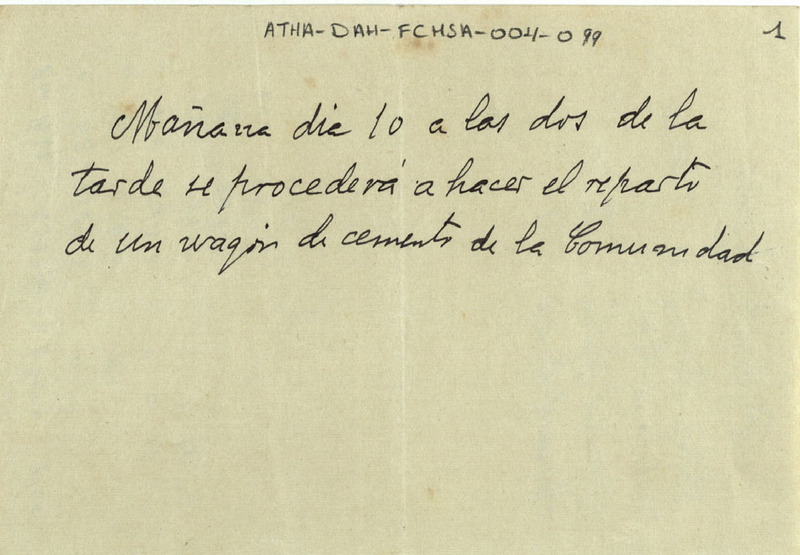 ATHA-DAH-FCHSA-004-099
1
Mañana dia 10 a las dos de la
tarde se procederá a hacer el reparto
de un wagón de cemento de la Comunidad